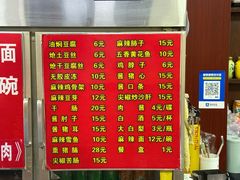 面
碗
肉》
油焖豆腐 6元
炝土豆丝 6元
炝干豆腐丝 6元
无骰皮冻 10元
麻辣鸡骨架 10元
麻辣豆芽 12元
干肠 10元
酱肘子 15元
酱猪耳 15元
麻辣鱼 10元
酱猪肠 28元
尖椒酱肠 15元
麻辣肠子 15元
五香黄花鱼 10元
鸡脖子 6元
酱猪心 15元
酱口条 15元
尖椒炒沙肝 15元
肉酱 4元
白酒 5元/杯
大白梨 3元/瓶
麻辣面 12元/碗
餐盒 1元